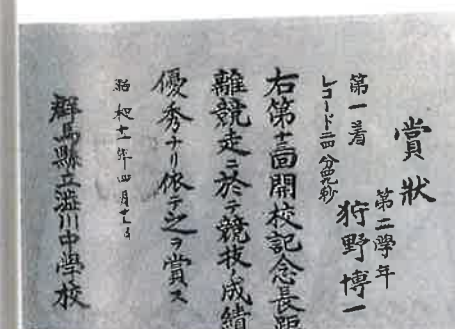 賞狀
第二學年
狩野博一
第一着
レコード二四分秒
右第回開校記念長距
離競走ニ於テ競技ノ成績
優秀ナリ依テ之ヲ賞ス
昭和十一年四月
群馬縣立澁川中學校